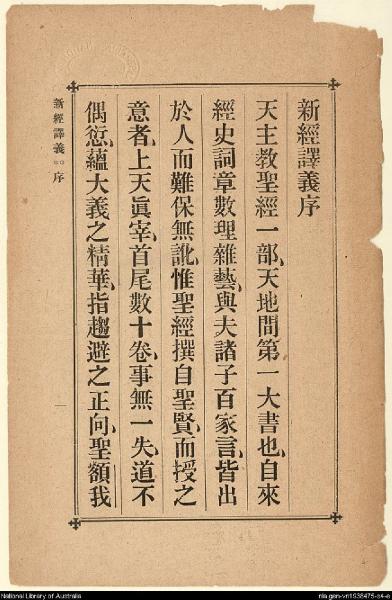 新經譯義序
天主教聖經一部、天地間第一大書也、自來
經史詞章數理雜藝、與夫諸子百家言、皆出
於人而難保無訛、惟聖經撰自聖賢、而授之
意者、上天眞宰、首尾數十卷、事無一失、道不
偶愆、蘊大義之精華、指趨避之正向、聖額我
新經譯義 序
一
National Library of Australia
nla.gen-vn1938475-s4-e